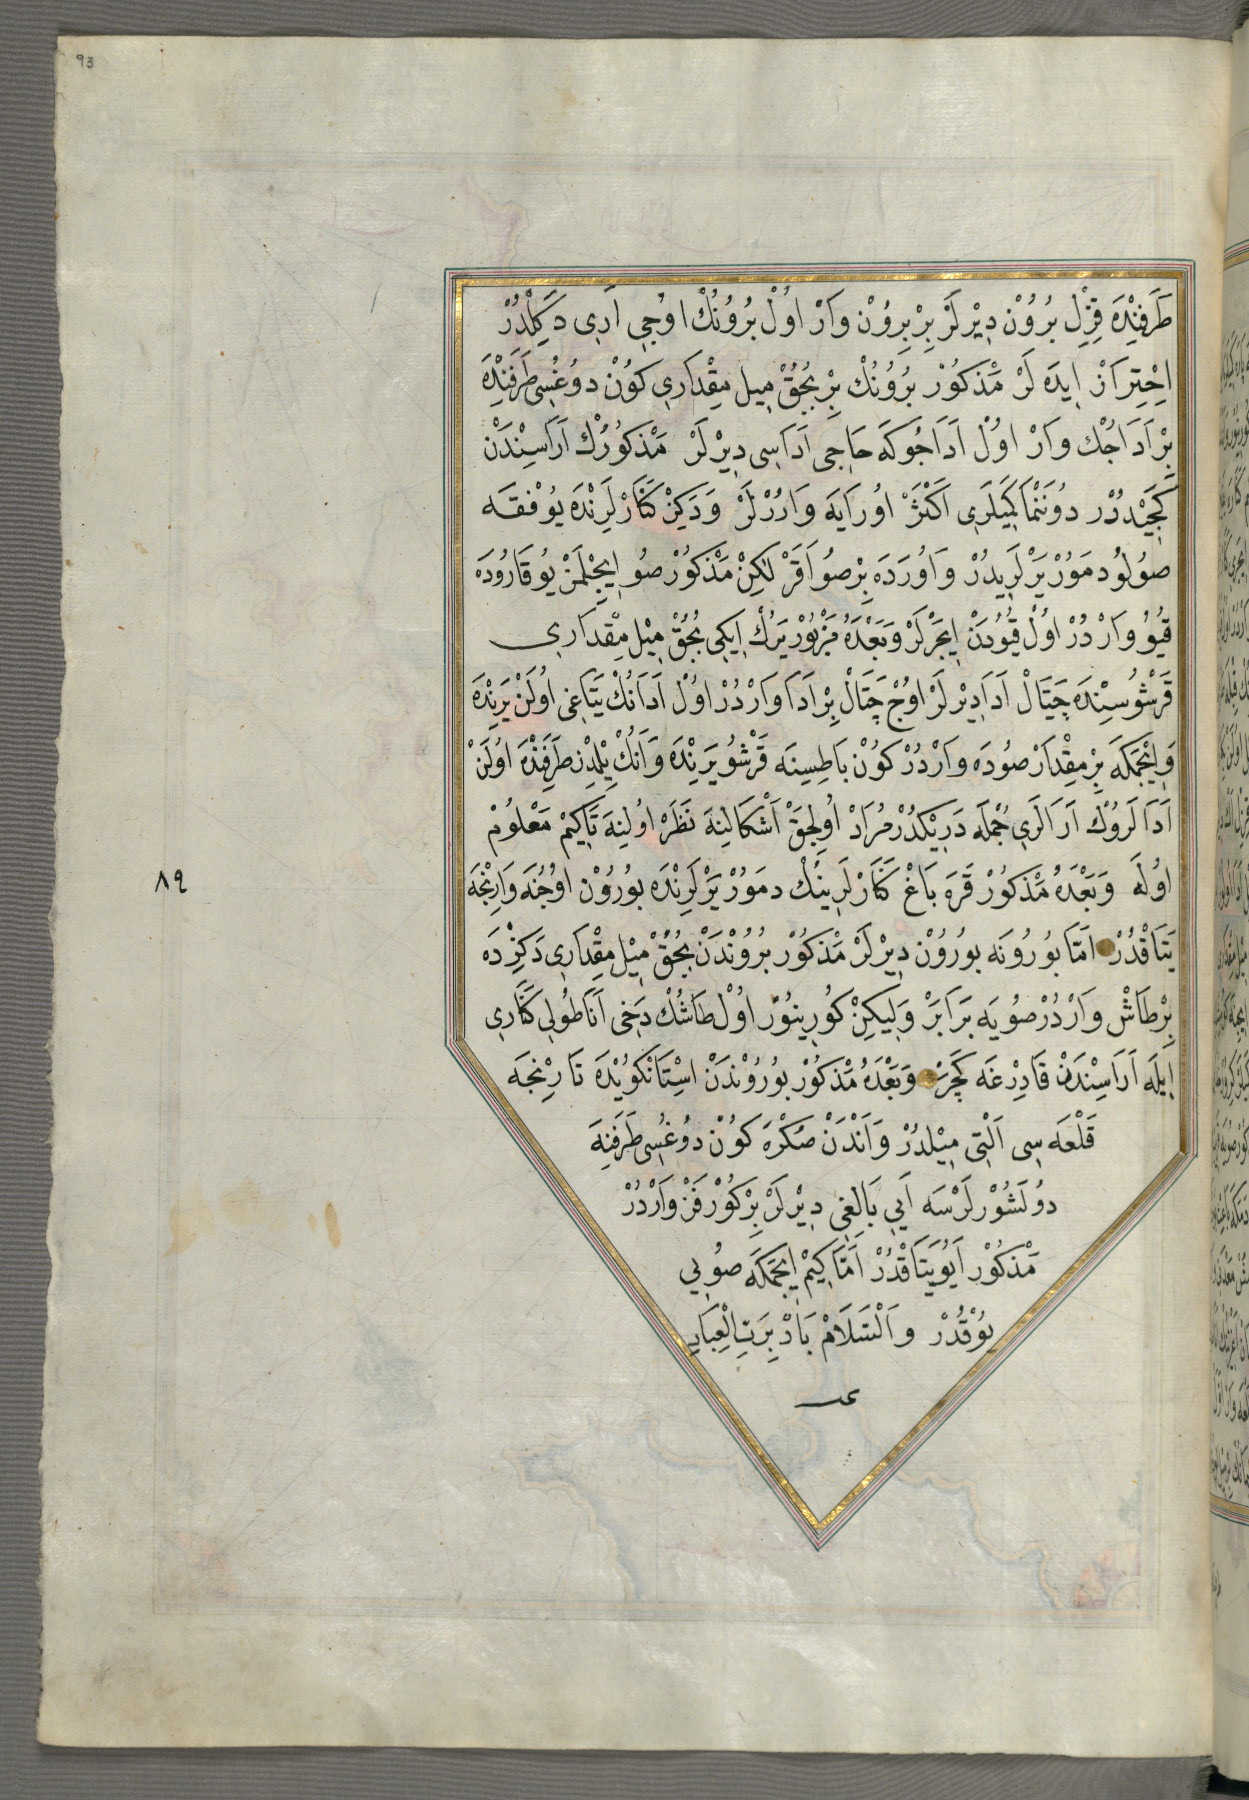 93
طَرَفِنْدَه قِزِلْ بُرُوْن دِيْرلَرْ بِرْ بِرِوُنْ وَارْ اوُلْ بُرُوُنُكْ اوُجِي آرِي دَكِلْدُرْ
اِحْتِرَازْ اِيدَه لَرْ مَذْكوُرْ بُرُوُنُكْ بِرْ بُجُقْ مِيل مِقْدَارِي كوُنْ دوُغُسِي طَرَفِنْدَه
بِرْ اَدَاجُكْ وَارْ اوُلْ اَدَاجُوكَه حَاجِي اَدَاسِي دِيْرلَرْ مَذْكوُرُكْ اَرَاسِنْدَنْ
كَجِيْدُرْ دوُنَنْمَا كَمِيلَرِي اَكْثَرْ اوُرَايَه وَارُرْلَرْ وَدَكِزْ كَنَارْلَرِنْدَه يوُفْقَه
صوُلوُ دمَوُرْ يَرْلَرِيدُرْ وَاوُرَدَه بِرْ صوُ اَقَرْ لٰكِنْ مَذْكوُرْ صوُ اِيچِلْمَزْ يوُقَارُودَه
قيُوُ وَارْدُرْ اوُلْ قيُوُدَنْ اِيچَرْلَرْ وَبَعْدَهُ مَزْبوُرْ يَرُكْ اِيكِي بُجُقْ مِيْل مِقْدَارِي
قَرْشوُسِنْدَه چَتَالْ اَدَا دِيْرلَرْ اوُچْ چَتَالْ بِرْ اَدَا وَارْدُرْ اوُلْ اَدَانُكْ يَتَاغِي اوُلَنْ يَرِنْدَه
وَاِيْچْمَكَه بِرْ مِقْدَارْ صوُدَه وَارْدُرْ كوُنْ بَاطِسِنَه قَرْشوُ يَرِنْدَه وَاَنُكْ يِلْدِزْ طَرَفِنْدَه اوُلَنْ
اَدَالَرُوكْ اَرَالَرِي جُمْلَه دَرِيْكدُرْ مُرَادْ اوُلِجَقْ اَشْكَالِينَه نَظَرْ اوُلِينَه تَاكِيمْ مَعْلوُمْ
اوُلَه وَبَعْدَهُ مَذْكوُرْ قَرَه بَاغْ كَنَارْلَرِينُكْ دمَوُرْ يَرْلَرِنْدَه بوُرُوْن اوُجُنَه وَارِنْجَه
يَتَاقْدُرْ اَمَّا بوُرُونَه بوُرُوْن دِيْرلَرْ مَذْكوُرْ بُرُوُنْدَنْ بُجُقْ مِيْل مِقْدَارِي دَكِزْدَه
بِرْ طَاشْ وَارْدُرْ صوُيَه بَرَابَرْ وَلِيكِنْ كوُرِينوُرْ اوُلْ طَاشُكْ دَخِي اَنَاطوُلِي كَنَارِي
اِيلَه اَرَاسِنْدَنْ قَادِرْغَه كَچَرْ وَبَعْدَهُ مَذْكوُرْ بوُرُوُنْدَنْ اسْتَانْكوُيْدَه نَارِنْجَه
قَلْعَه سِي اَلْتِي مِيْلدُرْ وَاَنْدَنْ صُكْرَه كوُنْ دوُغُسِي طَرَفِنَه
دوُلَشوُرْلَرْسَه اَيِي بَالِغِي دِيْرلَرْ بِرْ كوُرْفَزْ وَارْدُرْ
مَذْكوُرْ اَيوُ يَتَاقْدُرْ اَمَّا كِيمْ اِيچْمَكَه صوُيِي
يوُقْدُرْ وَالْسَّلَامْ بَادْ بِرَبِّ الْعِبَادِ
٨٩